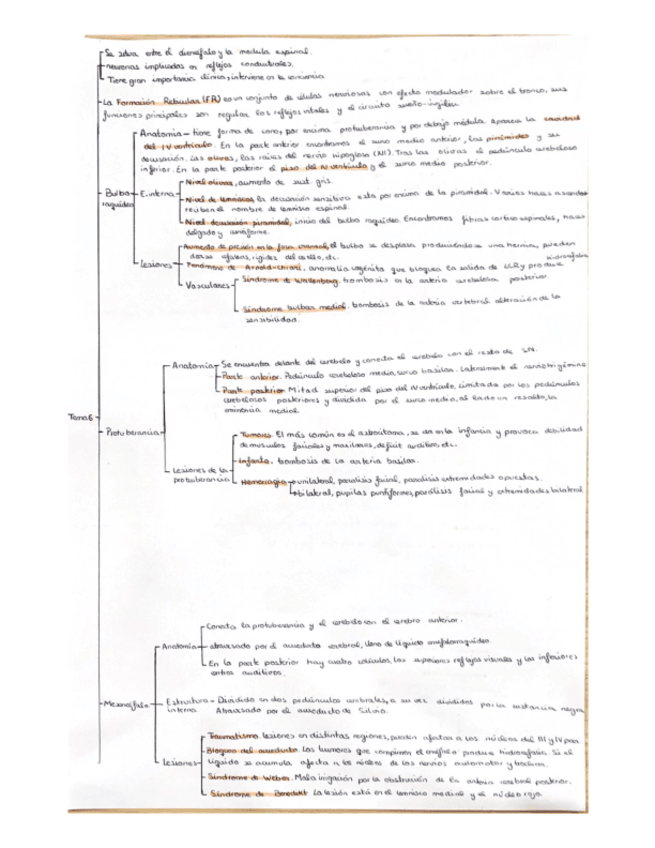 Se situa entre el diencéfalo y la medula espinal.
neuronas implicadas en reflejos conductuales.
Tiene gran importancia clínica, interviene en la conciencia
La Formación Reticular (FR) es un conjunto de células nerviosas con efecto modulador sobre el tronco, sus
funciones principales son regular los reflejos vitales y el circuito sueño-vigilia.
Anatomía - tiene forma de cono, por encima protuberancia y por debajo médula. Aparece la cavidad
del IV ventrículo. En la parte anterior encontramos el surco medio anterior, las pirámides y su
decusación. Las olivas, las raíces del nervio hipogloso (XII). Tras las olivas el pedúnculo cerebeloso
inferior. En la parte posterior el piso del IV ventrículo y el surco medio posterior.
Bulbo
raquídeo
E.interna
Nivel olivas, aumento de sust. gris.
Nivel de lemniscos, la decusación sensitiva esta por encima de la piramidal. Varios haces ascenden
reciben el nombre de lemnisco espinal.
Nivel decusación piramidal, inicio del bulbo raquídeo. Encontramos fibras cortico espinales, haces
delgado y cuneiforme.
Lesiones
Aumento de presión en la fosa craneal, el bulbo se desplaza produciéndose una hernia, pueden
darse cefaleas, rigidez del cuello, etc.
Fenómeno de Arnold-Chiari, anomalía congénita que bloquea la salida de LCR y produce hidrocefalia
Vasculares
Síndrome de Wallenberg, trombosis en la arteria cerebelosa posterior
Síndrome bulbar medial, trombosis de la arteria vertebral alteración de la
sensibilidad.
Tema 6
Protuberancia
Anatomía - Se encuentra delante del cerebelo y conecta el cerebelo con el resto de SN.
Parte anterior. Pedúnculo cerebeloso medio, surco basilar. Lateralmente el nervio trigémino
Parte posterior Mitad superior del piso del IV ventrículo, limitada por los pedúnculos
cerebelosos posteriores y dividida por el surco medio, al lado un resalto, la
eminencia medial.
Lesiones de la
protuberancia
Tumores. El más común es el astrocitoma, se da en la infancia y provoca debilidad
de musculos faciales y maxilares, déficit auditivo, etc.
Infarto. trombosis de la arteria basilar.
Hemorragia unilateral, parálisis facial, paralisis extremidades opuestas.
bilateral, pupilas puntiformes, parálisis facial y extremidades bilateral
Mesencéfalo
Anatomía
Conecta la protuberancia y el cerebelo con el cerebro anterior.
atravesado por el acueducto cerebral, lleno de líquido cefalorraquídeo.
En la parte posterior hay cuatro colículos, los superiores reflejos visuales y los inferiores
centros auditivos.
Estructura
interna
Dividido en dos pedúnculos cerebrales, a su vez divididos por la sustancia negra
Atravesado por el acueducto de Silvio.
Lesiones
Traumatismo lesiones en distintas regiones, pueden afectar a los núcleos del III y IV par
Bloqueo del acueducto los tumores que comprimen el encéfalo produce hidrocefalia. Si el
líquido se acumula afecta a los núcleos de los nervios oculomotor y troclear.
Síndrome de Weber. Mala irrigación por la obstrucción de la arteria cerebral posterior.
Síndrome de Benedikt La lesión está en el lemnisco medial y el núcleo rojo.